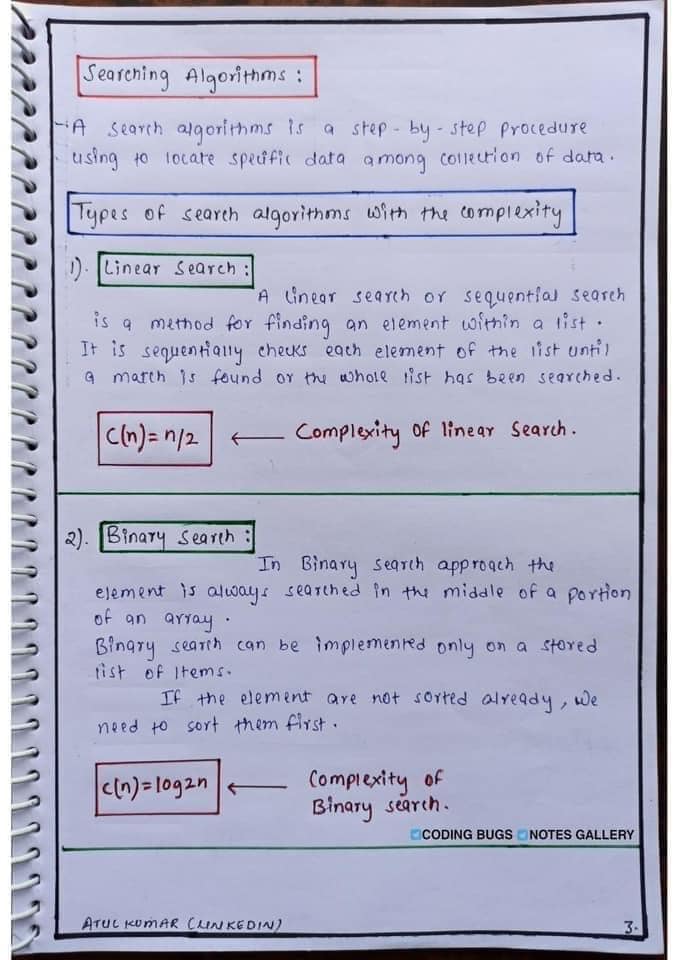 Searching Algorithms :
A search algorithms is a step-by-step procedure
using to locate specific data among collection of data.
Types of search algorithms with the complexity
1). Linear Search :
A linear search or sequential search
is a method for finding an element within a list.
It is sequentially checks each element of the list until
a match is found or the whole list has been searched.
C(n)= n/2 ← Complexity of linear Search.
2). Binary Search :
In Binary search approach the
element is always searched in the middle of a portion
of an array.
Binary search can be implemented only on a stored
list of Items.
If the element are not sorted already, we
need to sort them first.
C(n)=log2n ← Complexity of
Binary search.
CODING BUGS NOTES GALLERY
ATUL KUMAR (LINKEDIN) 3.